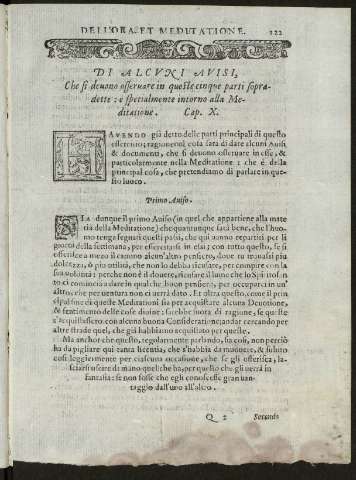 DELL'ORA. ET MEDITATIONE. 122
DI ALCVNI AVISI,
Che si deuono osseruare in queste cinque parti sopra-
dette: e spetialmente intorno alla Me-
ditatione. Cap. X.
HAVENDO già detto delle parti principali di questo
essercitio; ragioneuol cosa sarà di dare alcuni Auisi,
& documenti, che si deuono osseruare in esse, &
particolarmente nella Meditatione: che è della
principal cosa, che pretendiamo di parlare in que-
sto luoco.
Primo Auiso.
SIA donque il primo Auiso (in quel che appartiene alla mate
tia della Meditatione) che quantunque sarà bene, che l'huo-
mo tenga questi passi, che quì auanti repartiti per li
giorni della settimana, per essercitarsi in essi; con tutto questo, se si
offerisse a mezo il camino alcun'altro pensiero, doue tu trouassi piu
dolcezza, ò piu vtilità, che non lo debba ricusare, per compire con la
sua volontà: perche non è il douere, ricusare il lume che lo Spirito san
to ci comincia a dare in qualche buon pensiero, per occuparci in vn'
altro, che per uentura non ci uerrà dato. Et oltra questo, come il prin
cipal fine di queste Meditationi sia per acquistare alcuna Deuotione,
& sentimento delle cose diuine: sarebbe fuora di ragione, se questo
s'acquistasse con alcuna buona Consideratione; andar cercando per
altre strade quel, che già habbiamo acquistato per queste.
Ma anchor che questo, regolarmente parlando, sia così, non perciò
ha da pigliare quì tanta licentia, che s'habbia da muouere, & subito
così leggiermente per ciascuna occasione, che se gli offerisca, la-
sciarsi uscire di mano quel che ha, per questo che gli uerrà in
fantasia: se non fosse che egli conoscesse gran uan-
taggio dall'uno all'altro.
Q 2 Secondo